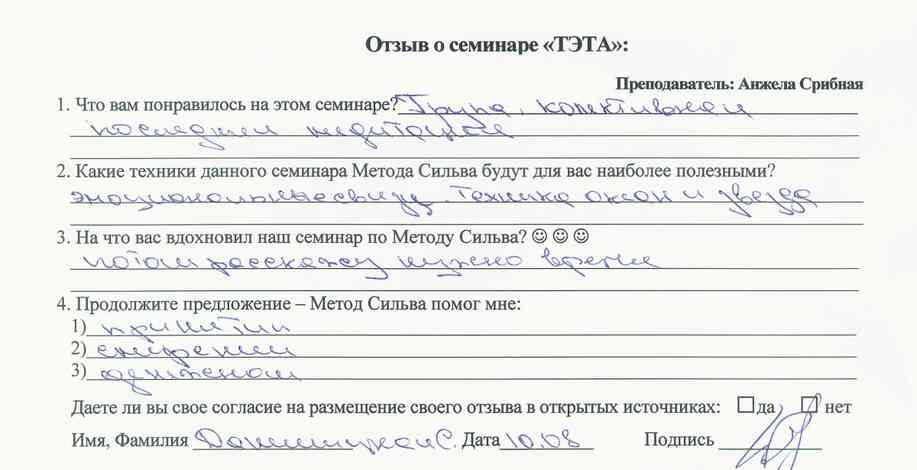 Отзыв о семинаре «ТЭТА»:
Преподаватель: Анжела Срибная
1. Что вам понравилось на этом семинаре? Група, колективная
последняя медитация
2. Какие техники данного семинара Метода Сильва будут для вас наиболее полезными?
эмоциональные Техника окон и звезда
3. На что вас вдохновил наш семинар по Методу Сильва? ☺ ☺ ☺
потом расскажу нужно время
4. Продолжите предложение – Метод Сильва помог мне:
1) принятии
2) смирении
3)
Даете ли вы свое согласие на размещение своего отзыва в открытых источниках: ☐ да ☐ нет
Имя, Фамилия С. Дата 10.08 Подпись